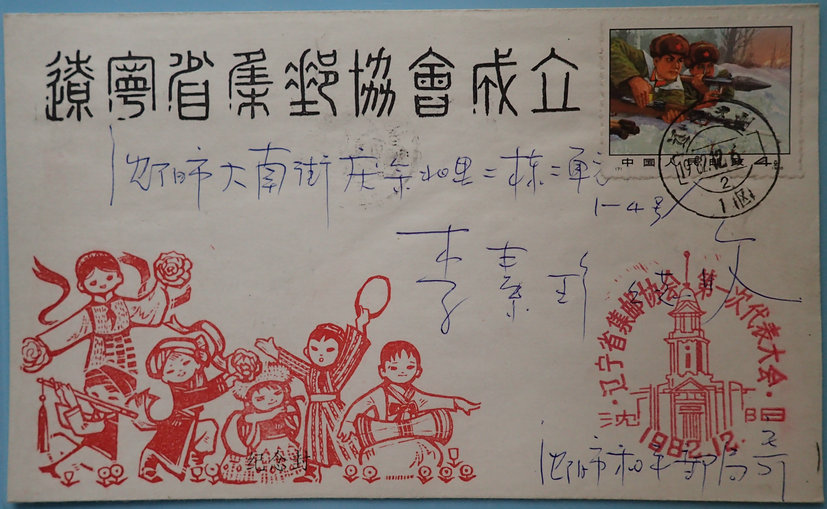 遼寧省集郵協會成立
中国人民邮政 4分
沈阳市大南街
二栋二单元
1-4号
李素珍
辽宁省集邮协会第一次代表大会
沈阳
1982.12.
纪念封
沈阳市和平邮局